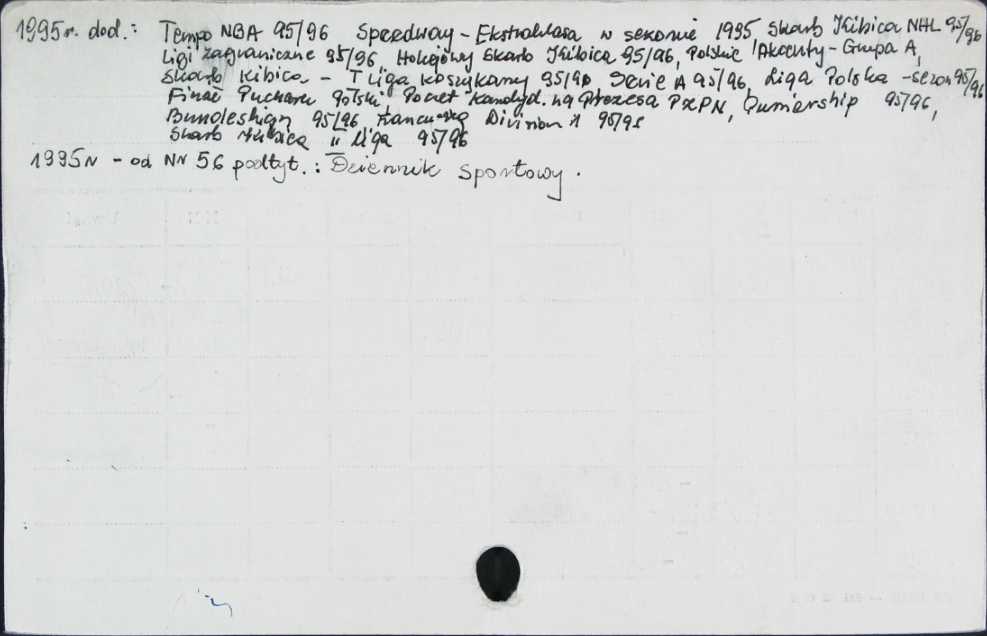 1995r. dod.: Tempo NBA 95/96 Speedway - Ekstraklasa w sezonie 1995 Skarb Kibica NHL 95/96
Ligi zagraniczne 95/96, Hokejowy Skarb Kibica 95/96, Polskie Akcenty - Grupa A,
Skarb Kibica - I Liga koszykarzy 95/96 Serie A 95/96, Liga Polska - sezon 95/96
Finał Pucharu Polski, Poczet kandyd. na Prezesa PZPN, Premiership 95/96,
Bundesliga 95/96 Francuska Division 1 95/96
Skarb Kibica II Liga 95/96
1995r - od Nr 56 podtyt.: Dziennik Sportowy.